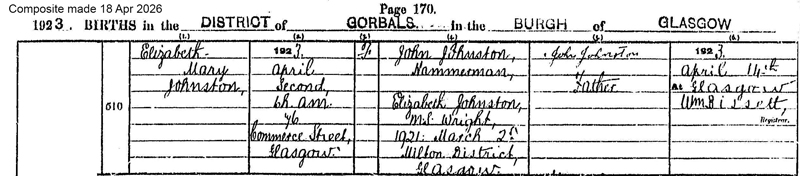 Composite made 18 Apr 2026
Page 170.
1923. BIRTHS in the DISTRICT of GORBALS in the BURGH of GLASGOW
(1.) (2.) (3.) (4.) (5.) (6.)
610
Elizabeth
Mary
Johnston,
1923.
April
Second,
6h. am.
76
Commerce Street,
Glasgow.
John Johnston,
Hammerman,
Elizabeth Johnston,
M.S. Wright,
1921: March 2nd
Milton District,
Glasgow.
John Johnston
Father
1923.
April 14th
At Glasgow
Wm Bissett,
Registrar.